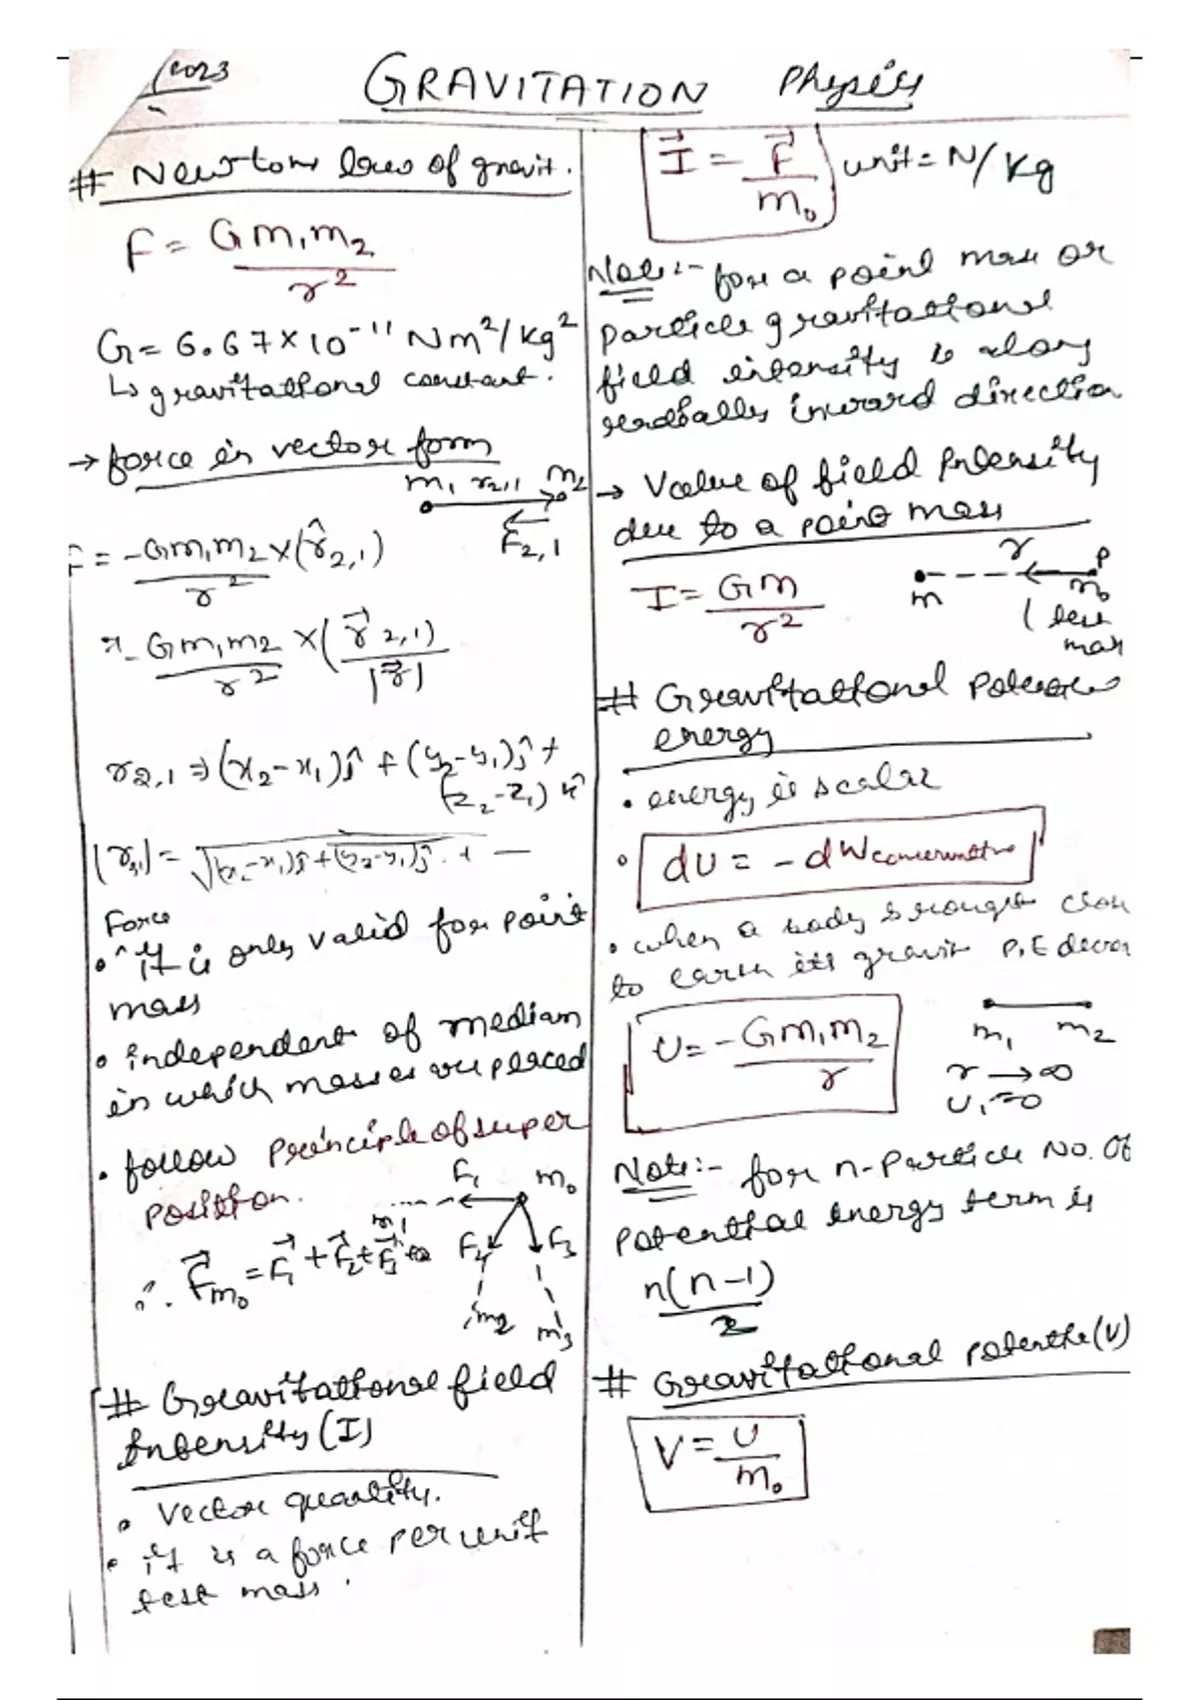 2023
GRAVITATION Physics
# Newtons laws of gravit.
F = Gm₁m₂
r²
G = 6.67×10⁻¹¹ Nm²/kg²
↳ gravitational constant.
→ force in vector form
m₁ r₂,₁ m₂
F₂,₁
F = -Gm₁m₂ × (r̂₂,₁)
r²
Gm₁m₂ × (r⃗ ₂,₁)
r² |r⃗|
r₂,₁ ⇒ (x₂-x₁)ĵ + (y₂-y₁)ĵ +
(z₂-z₁) k̂
Force
• it is only valid for point
mass
• independent of median
in which masses are placed
• follow principle of super
position.
F₁ m₀
m₁
F₄ F₃
∴ F⃗m₀ = F⃗₁ + F⃗₂ + F⃗₃
m₂ m₃
# Gravitational field
Intensity (I)
• Vector quantity.
• it is a force per unit
test mass.
I⃗ = F⃗ unit = N/kg
m₀
Note:- for a point mass or
particle gravitational
field intensity is along
readially inward direction
→ Value of field Intensity
due to a point mass
r P
I = Gm m m₀
r² (test
mass
# Gravitational Potential
energy
• energy is scalar
• dU = -dW conservative
• when a body brought close
to earth its gravit P.E decre
U = -Gm₁m₂
r
m₁ m₂
r → ∞
U₁ = 0
Note:- for n-Particle No. of
Potential energy term is
n(n-1)
2
# Gravitational potential (V)
V = U
m₀